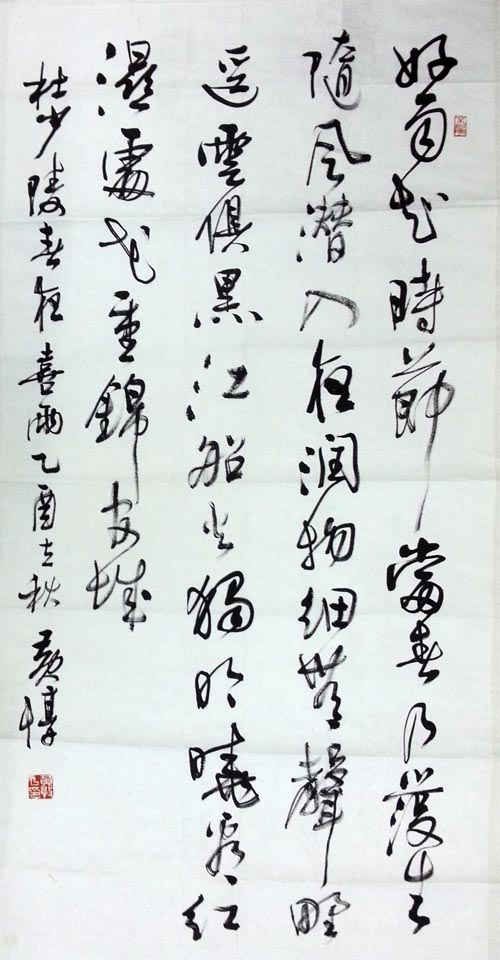 好雨知時節當春乃發生
隨風潛入夜润物细無聲野
逕雲俱黑江船火獨明曉看红
濕處花重錦官城
杜少陵春夜喜雨乙酉立秋